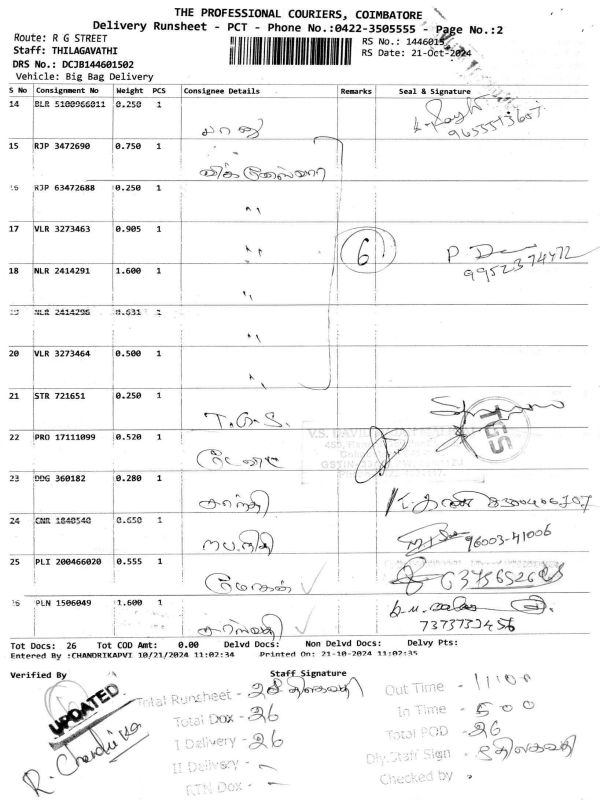 THE PROFESSIONAL COURIERS, COIMBATORE
Delivery Runsheet - PCT - Phone No.:0422-3505555 - Page No.:2
Route: R G STREET
RS No.: 1446015
Staff: THILAGAVATHI
RS Date: 21-Oct-2024
DRS No.: DCJB144601502
Vehicle: Big Bag Delivery
S No Consignment No Weight PCS Consignee Details Remarks Seal & Signature
14 BLR 5100966011 0.250 1
9655513607
15 RJP 3472690 0.750 1
16 RJP 63472688 0.250 1 "
17 VLR 3273463 0.905 1 " 6
9952374472
18 NLR 2414291 1.600 1 "
19 NLR 2414296 0.631 1 "
20 VLR 3273464 0.500 1 "
21 STR 721651 0.250 1 T.G.S.
TGS
22 PRO 17111099 0.520 1
23 DDG 360182 0.280 1 சாந்தி
24 CNR 1840540 0.650 1 96003-41006
25 PLI 200466020 0.555 1 மோகன்
26 PLN 1506049 1.600 1 சரஸ்வதி
7373733456
Tot Docs: 26 Tot COD Amt: 0.00 Delvd Docs: Non Delvd Docs: Delvy Pts:
Entered By :CHANDRIKAPVI 10/21/2024 11:02:34 Printed On: 21-10-2024 11:02:35
Verified By Staff Signature
UPDATED
Total Runsheet - 2 Out Time - 11:00
Total Dox - 26 In Time - 500
I Delivery - 26 Total POD - 26
II Delivery - Dly.Staff Sign -
RTN Dox - Checked by